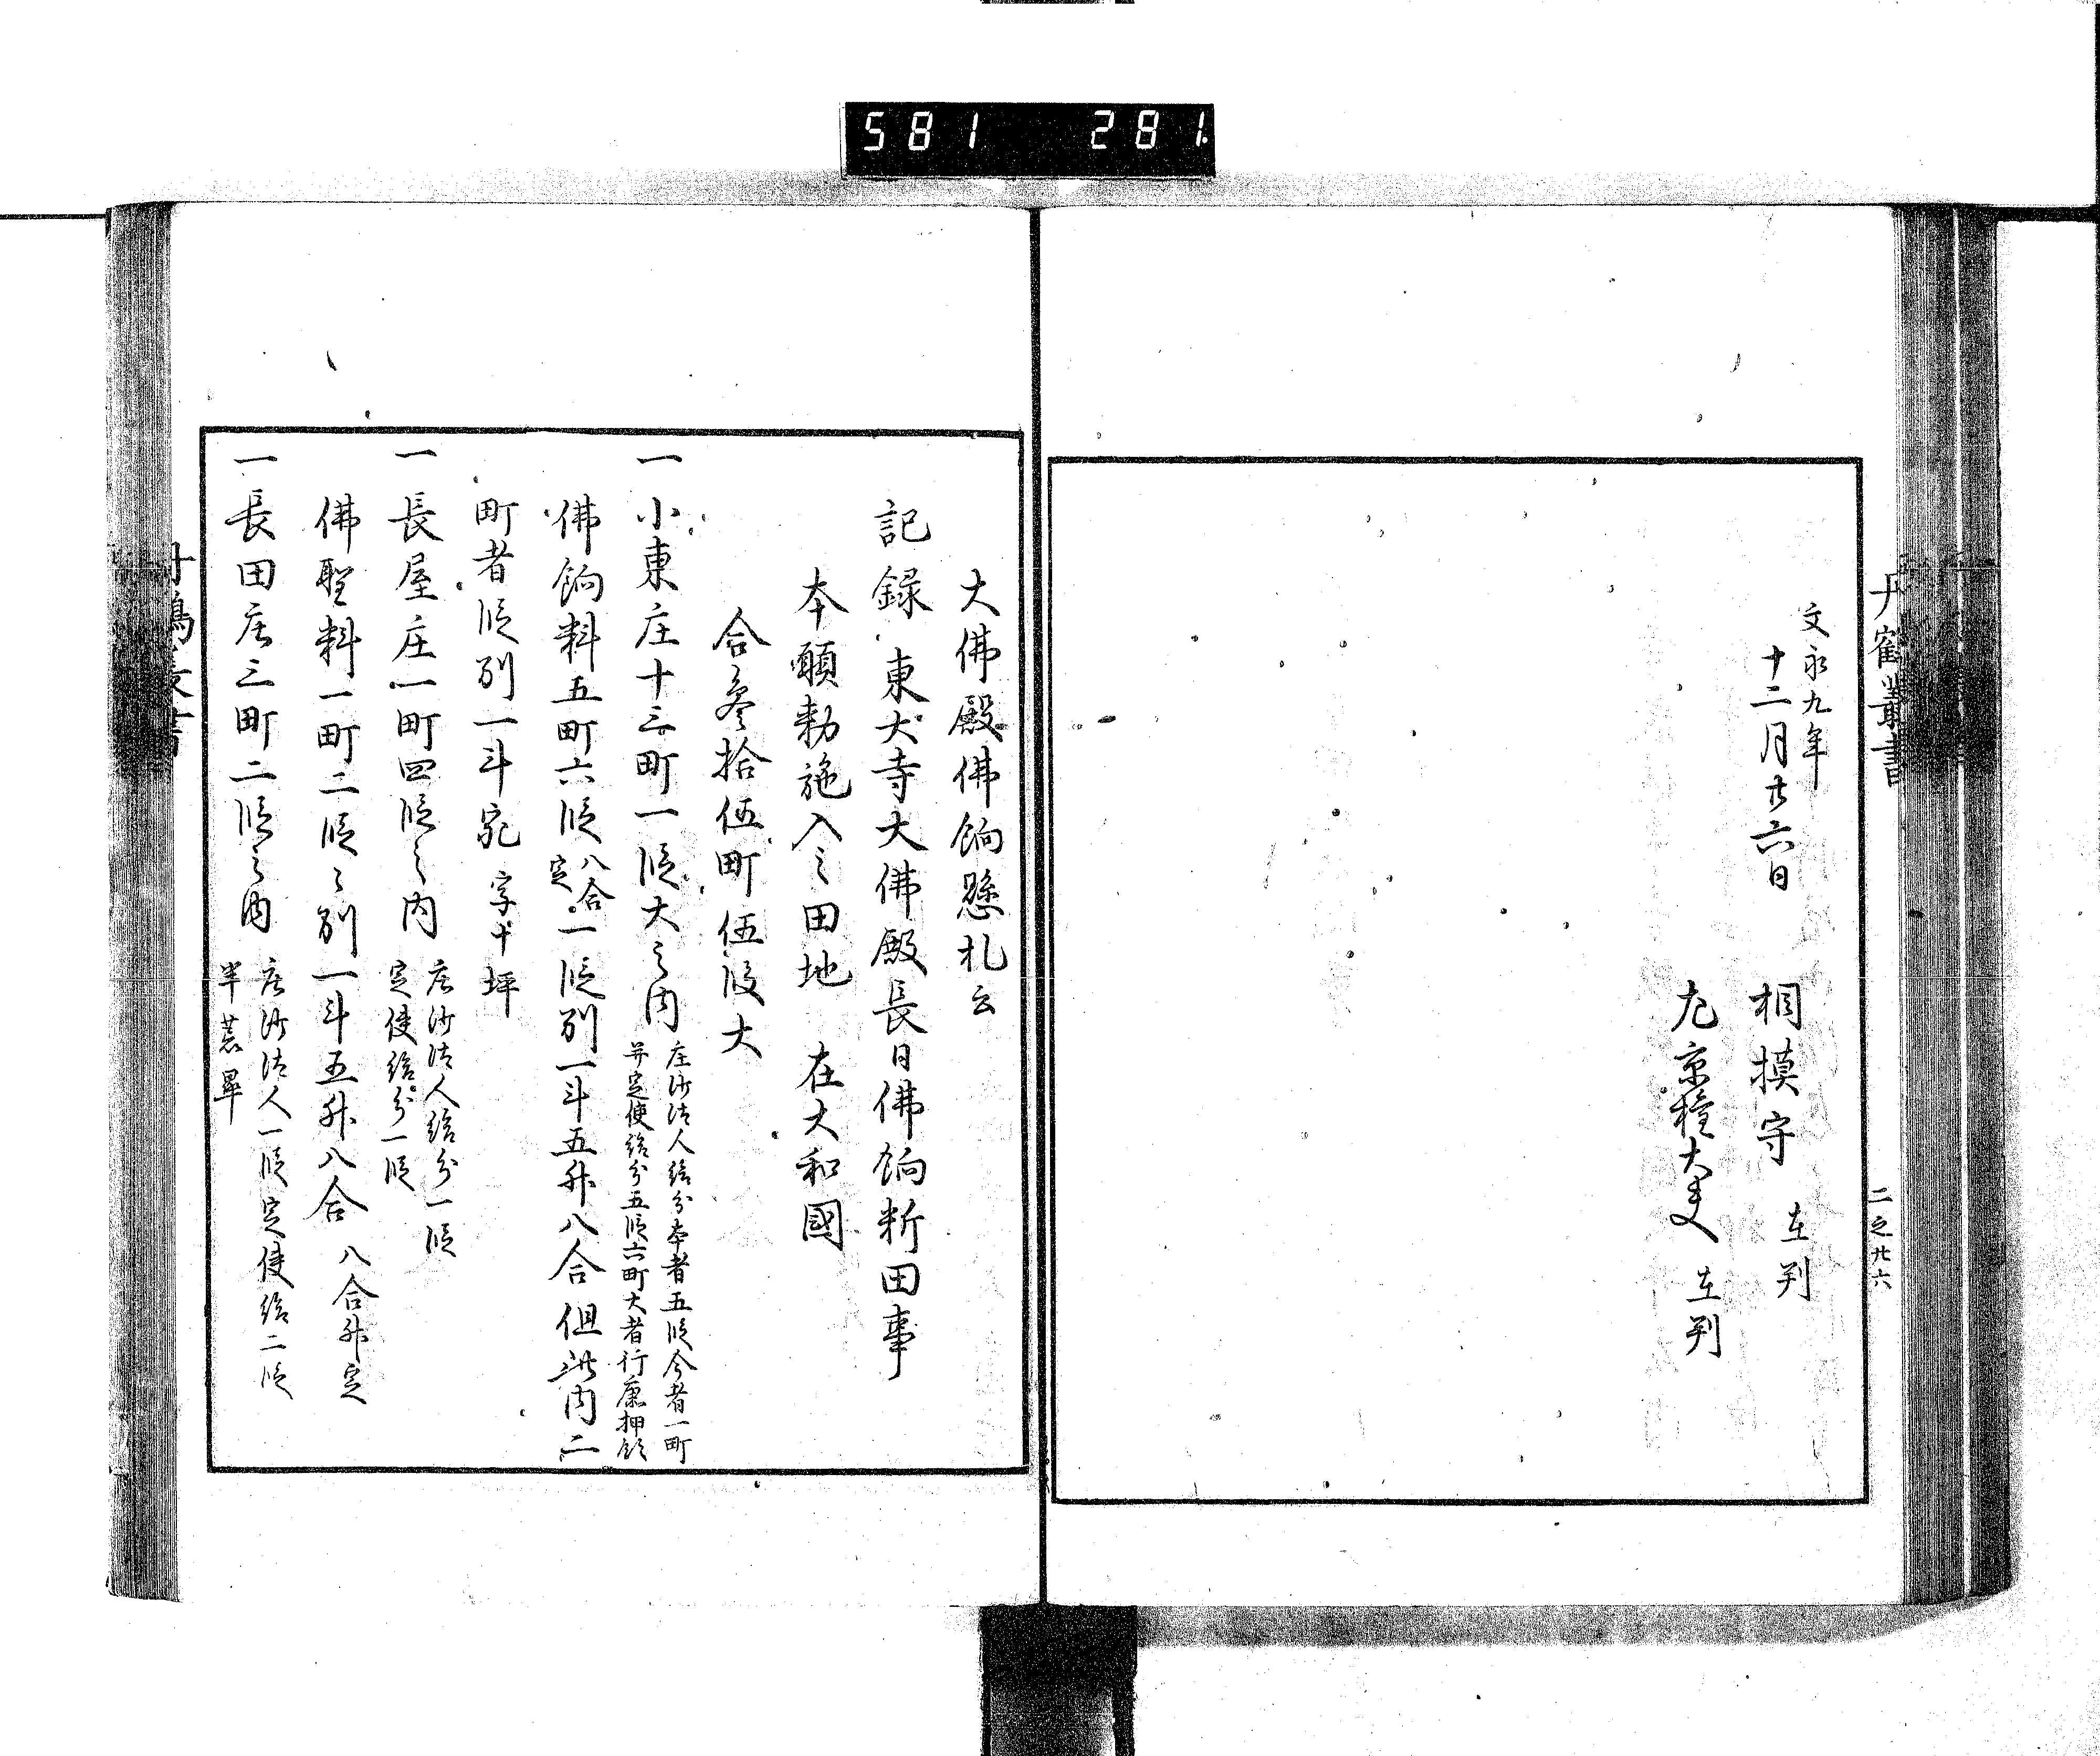 581 281
丹鶴叢書
二之廿六
文永九年
十二月廿六日
相摸守 在判
左京權大夫 在判
大佛殿佛餉懸札云
記録 東大寺大佛殿長日佛餉断田事
本願勅施入之田地 在大和國
合參拾伍町伍段大
一小東庄十三町一段大之内
庄沙汰人給分本者五段今者一町
并定使給分五段六町大者行康押領
佛餉料五町六段
八合
定
一段別一斗五升八合 但此内二
町者段別一斗宛 字十坪
一長屋庄一町四段之内
庄沙汰人給分一段
定使給分一段
佛聖料一町二段々別一斗五升八合 八合升定
一長田庄三町二段之内
庄沙汰人一段定使給二段
半荒畢